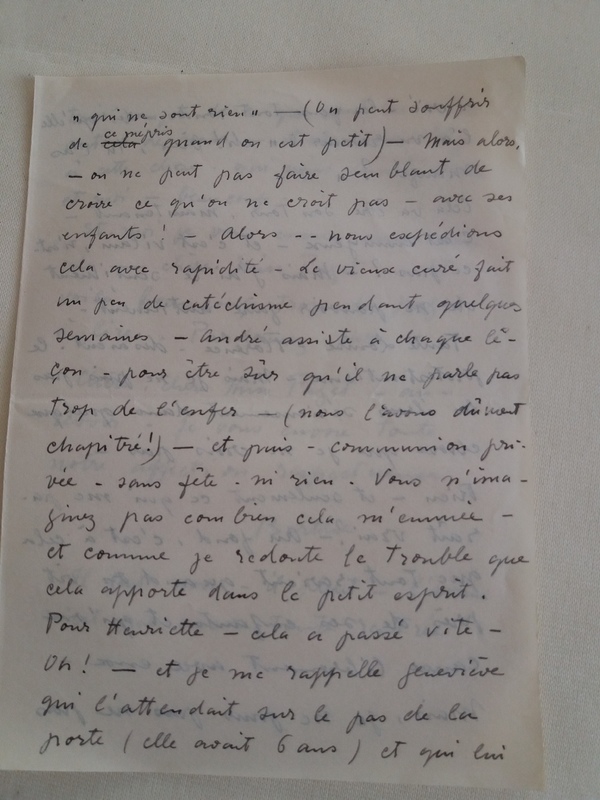 " qui ne sont rien " — (On peut souffrir
de ~~cela~~ ce mépris quand on est petit) — Mais alors,
— on ne peut pas faire semblant de
croire ce qu'on ne croit pas — avec ses
enfants ! — Alors -- nous expédions
cela avec rapidité - Le vieux curé fait
un peu de catéchisme pendant quelques
semaines — André assiste à chaque le-
çon - pour être sûr qu'il ne parle pas
trop de l'enfer — (nous l'avons dûment
chapitré !) — et puis - communion pri-
vée - sans fête - ni rien. Vous n'ima-
ginez pas combien cela m'ennuie —
et comme je redoute le trouble que
cela apporte dans le petit esprit.
Pour Henriette — cela a passé vite —
Oh ! — et je me rappelle Geneviève
qui l'attendait sur le pas de la
porte (elle avait 6 ans) et qui lui